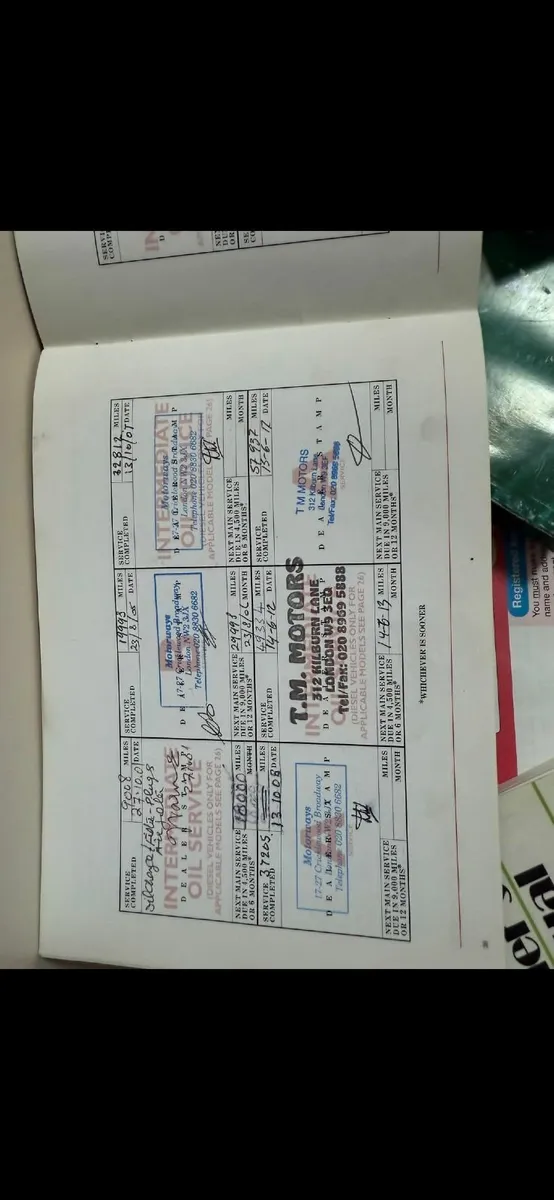 SERVICE COMPLETED
9008 MILES
27.10.01 DATE
INTERMEDIATE
OIL SERVICE
DEALER STAMP
(DIESEL VEHICLES ONLY FOR
APPLICABLE MODELS SEE PAGE 26)
NEXT MAIN SERVICE
DUE IN 4,500 MILES
OR 6 MONTHS*
18000 MILES
MONTH
SERVICE COMPLETED
19993 MILES
23/8/05 DATE
Motorways
17-27 Cricklewood Broadway
London NW2 3JX
Telephone 020 8830 6682
DEALER STAMP
NEXT MAIN SERVICE
DUE IN 9,000 MILES
OR 12 MONTHS*
29993 MILES
23/8/06 MONTH
SERVICE COMPLETED
32812 MILES
13/10/07 DATE
INTERMEDIATE
OIL SERVICE
Motorways
Cricklewood Broadway
London NW2 3JX
Telephone 020 8830 6682
DEALER STAMP
(DIESEL VEHICLES ONLY FOR
APPLICABLE MODELS SEE PAGE 26)
NEXT MAIN SERVICE
DUE IN 4,500 MILES
OR 6 MONTHS*
MILES
MONTH
SERVICE COMPLETED
37205 MILES
13.10.08 DATE
Motorways
17-27 Cricklewood Broadway
London NW2 3JX
Telephone 020 8830 6682
DEALER STAMP
NEXT MAIN SERVICE
DUE IN 9,000 MILES
OR 12 MONTHS*
MILES
MONTH
SERVICE COMPLETED
MILES
14-6-12 DATE
INTERMEDIATE
OIL SERVICE
T.M. MOTORS
312 KILBURN LANE
LONDON W9 3EQ
Tel/Fax: 020 8969 5888
DEALER STAMP
(DIESEL VEHICLES ONLY FOR
APPLICABLE MODELS SEE PAGE 26)
NEXT MAIN SERVICE
DUE IN 4,500 MILES
OR 6 MONTHS*
MILES
14-6-13 MONTH
SERVICE COMPLETED
52932 MILES
DATE
T M MOTORS
312 Kilburn Lane
Tel/Fax: 020 8969 5888
DEALER STAMP
NEXT MAIN SERVICE
DUE IN 9,000 MILES
OR 12 MONTHS*
MILES
MONTH
*WHICHEVER IS SOONER
Registered
You must
name and